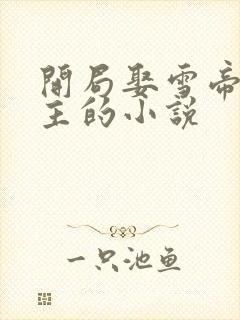 開局娶雪帝
主的小説
一只池鱼